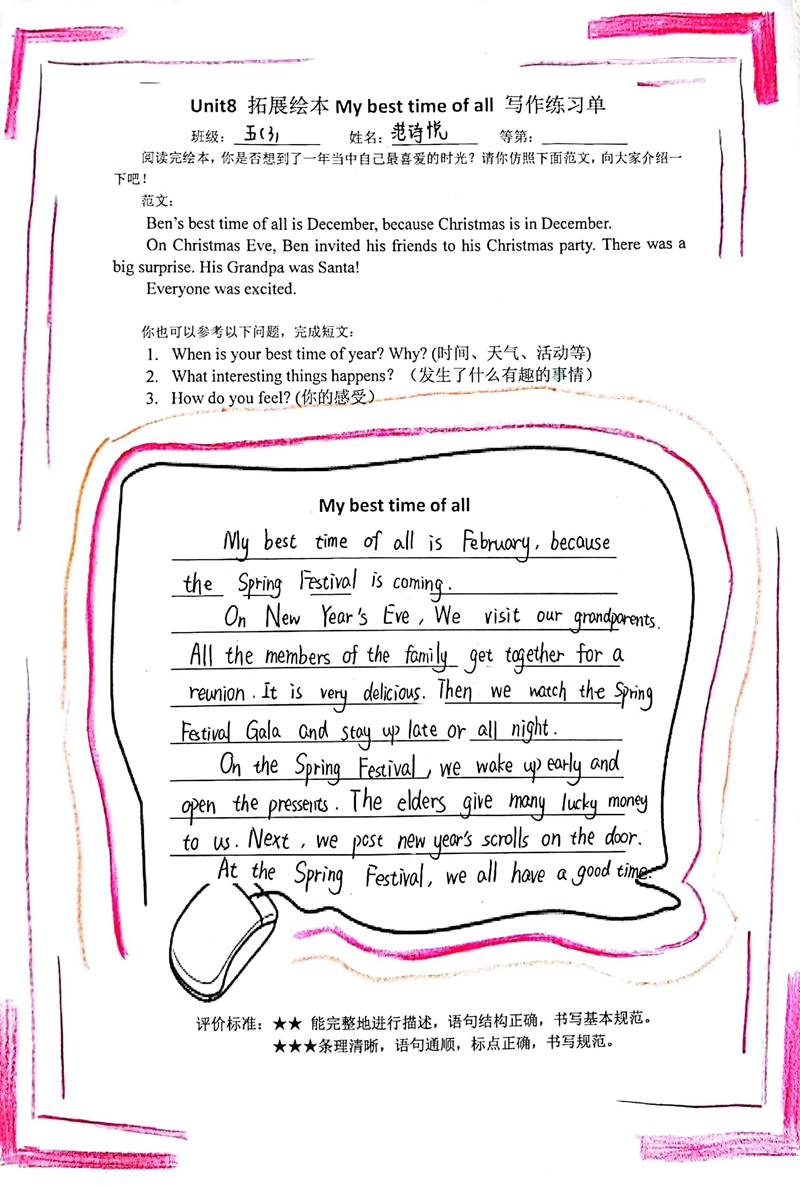 Unit8 拓展绘本 My best time of all 写作练习单
班级：五(3) 姓名：范诗悦 等第：
阅读完绘本，你是否想到了一年当中自己最喜爱的时光？请你仿照下面范文，向大家介绍一
下吧！
范文：
Ben's best time of all is December, because Christmas is in December.
On Christmas Eve, Ben invited his friends to his Christmas party. There was a
big surprise. His Grandpa was Santa!
Everyone was excited.
你也可以参考以下问题，完成短文：
1. When is your best time of year? Why? (时间、天气、活动等)
2. What interesting things happens? （发生了什么有趣的事情）
3. How do you feel? (你的感受）
My best time of all
My best time of all is February, because
the Spring Festival is coming.
On New Year's Eve, We visit our grandparents.
All the members of the family get together for a
reunion. It is very delicious. Then we watch the Spring
Festival Gala and stay up late or all night.
On the Spring Festival, we wake up early and
open the presseints. The elders give many lucky money
to us. Next, we post new year's scrolls on the door.
At the Spring Festival, we all have a good time.
评价标准：★★ 能完整地进行描述，语句结构正确，书写基本规范。
★★★条理清晰，语句通顺，标点正确，书写规范。